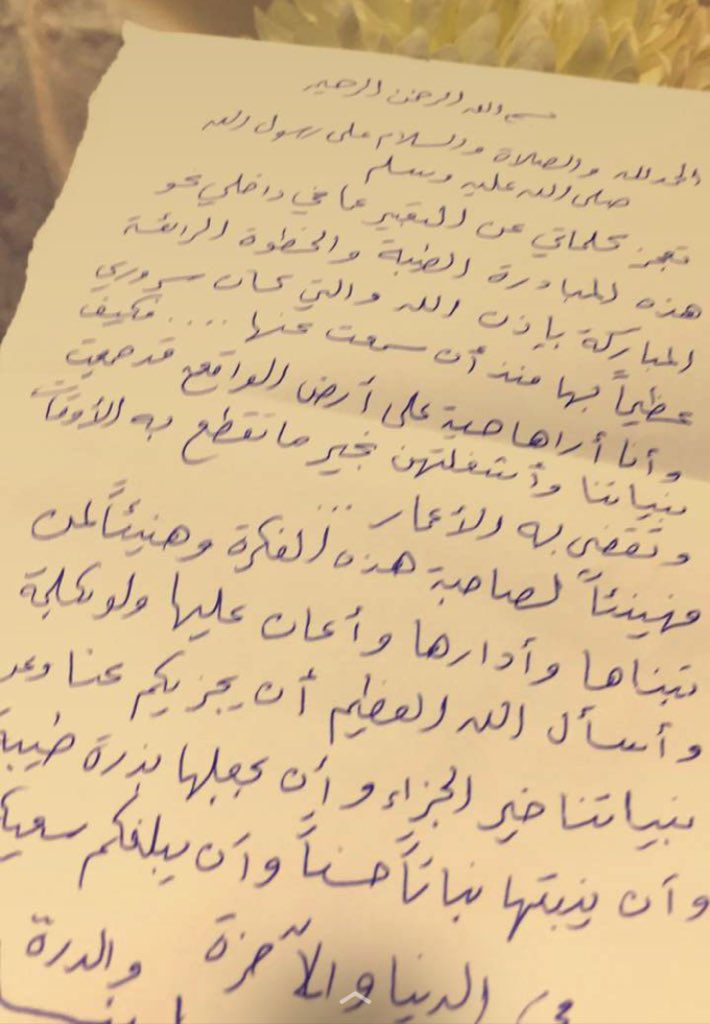 بسم الله الرحمن الرحيم
الحمد لله والصلاة والسلام على رسول الله
صلى الله عليه وسلم
تعجز كلماتي عن التعبير عما في داخلي نحو
هذه المبادرة الطيبة والخطوة الرائعة
المباركة بإذن الله والتي كان سروري
عظيماً بها منذ أن سمعت عنها .... فكيف
وأنا أراها حية على أرض الواقع قد جمعت
بنياتنا وأشغلتهن بخير ما تقطع به الأوقات
وتقضى به الأعمار ...
فهنيئاً لصاحبة هذه الفكرة وهنيئاً لمن
تبناها وأدارها وأعان عليها ولو بكلمة
وأسأل الله العظيم أن يجزيكم عنا وعن
بنياتنا خير الجزاء وأن يجعلها بذرة طيبة
وأن ينبتها نباتاً حسناً وأن يبلغكم سعيكم
في الدنيا والآخرة والدرة